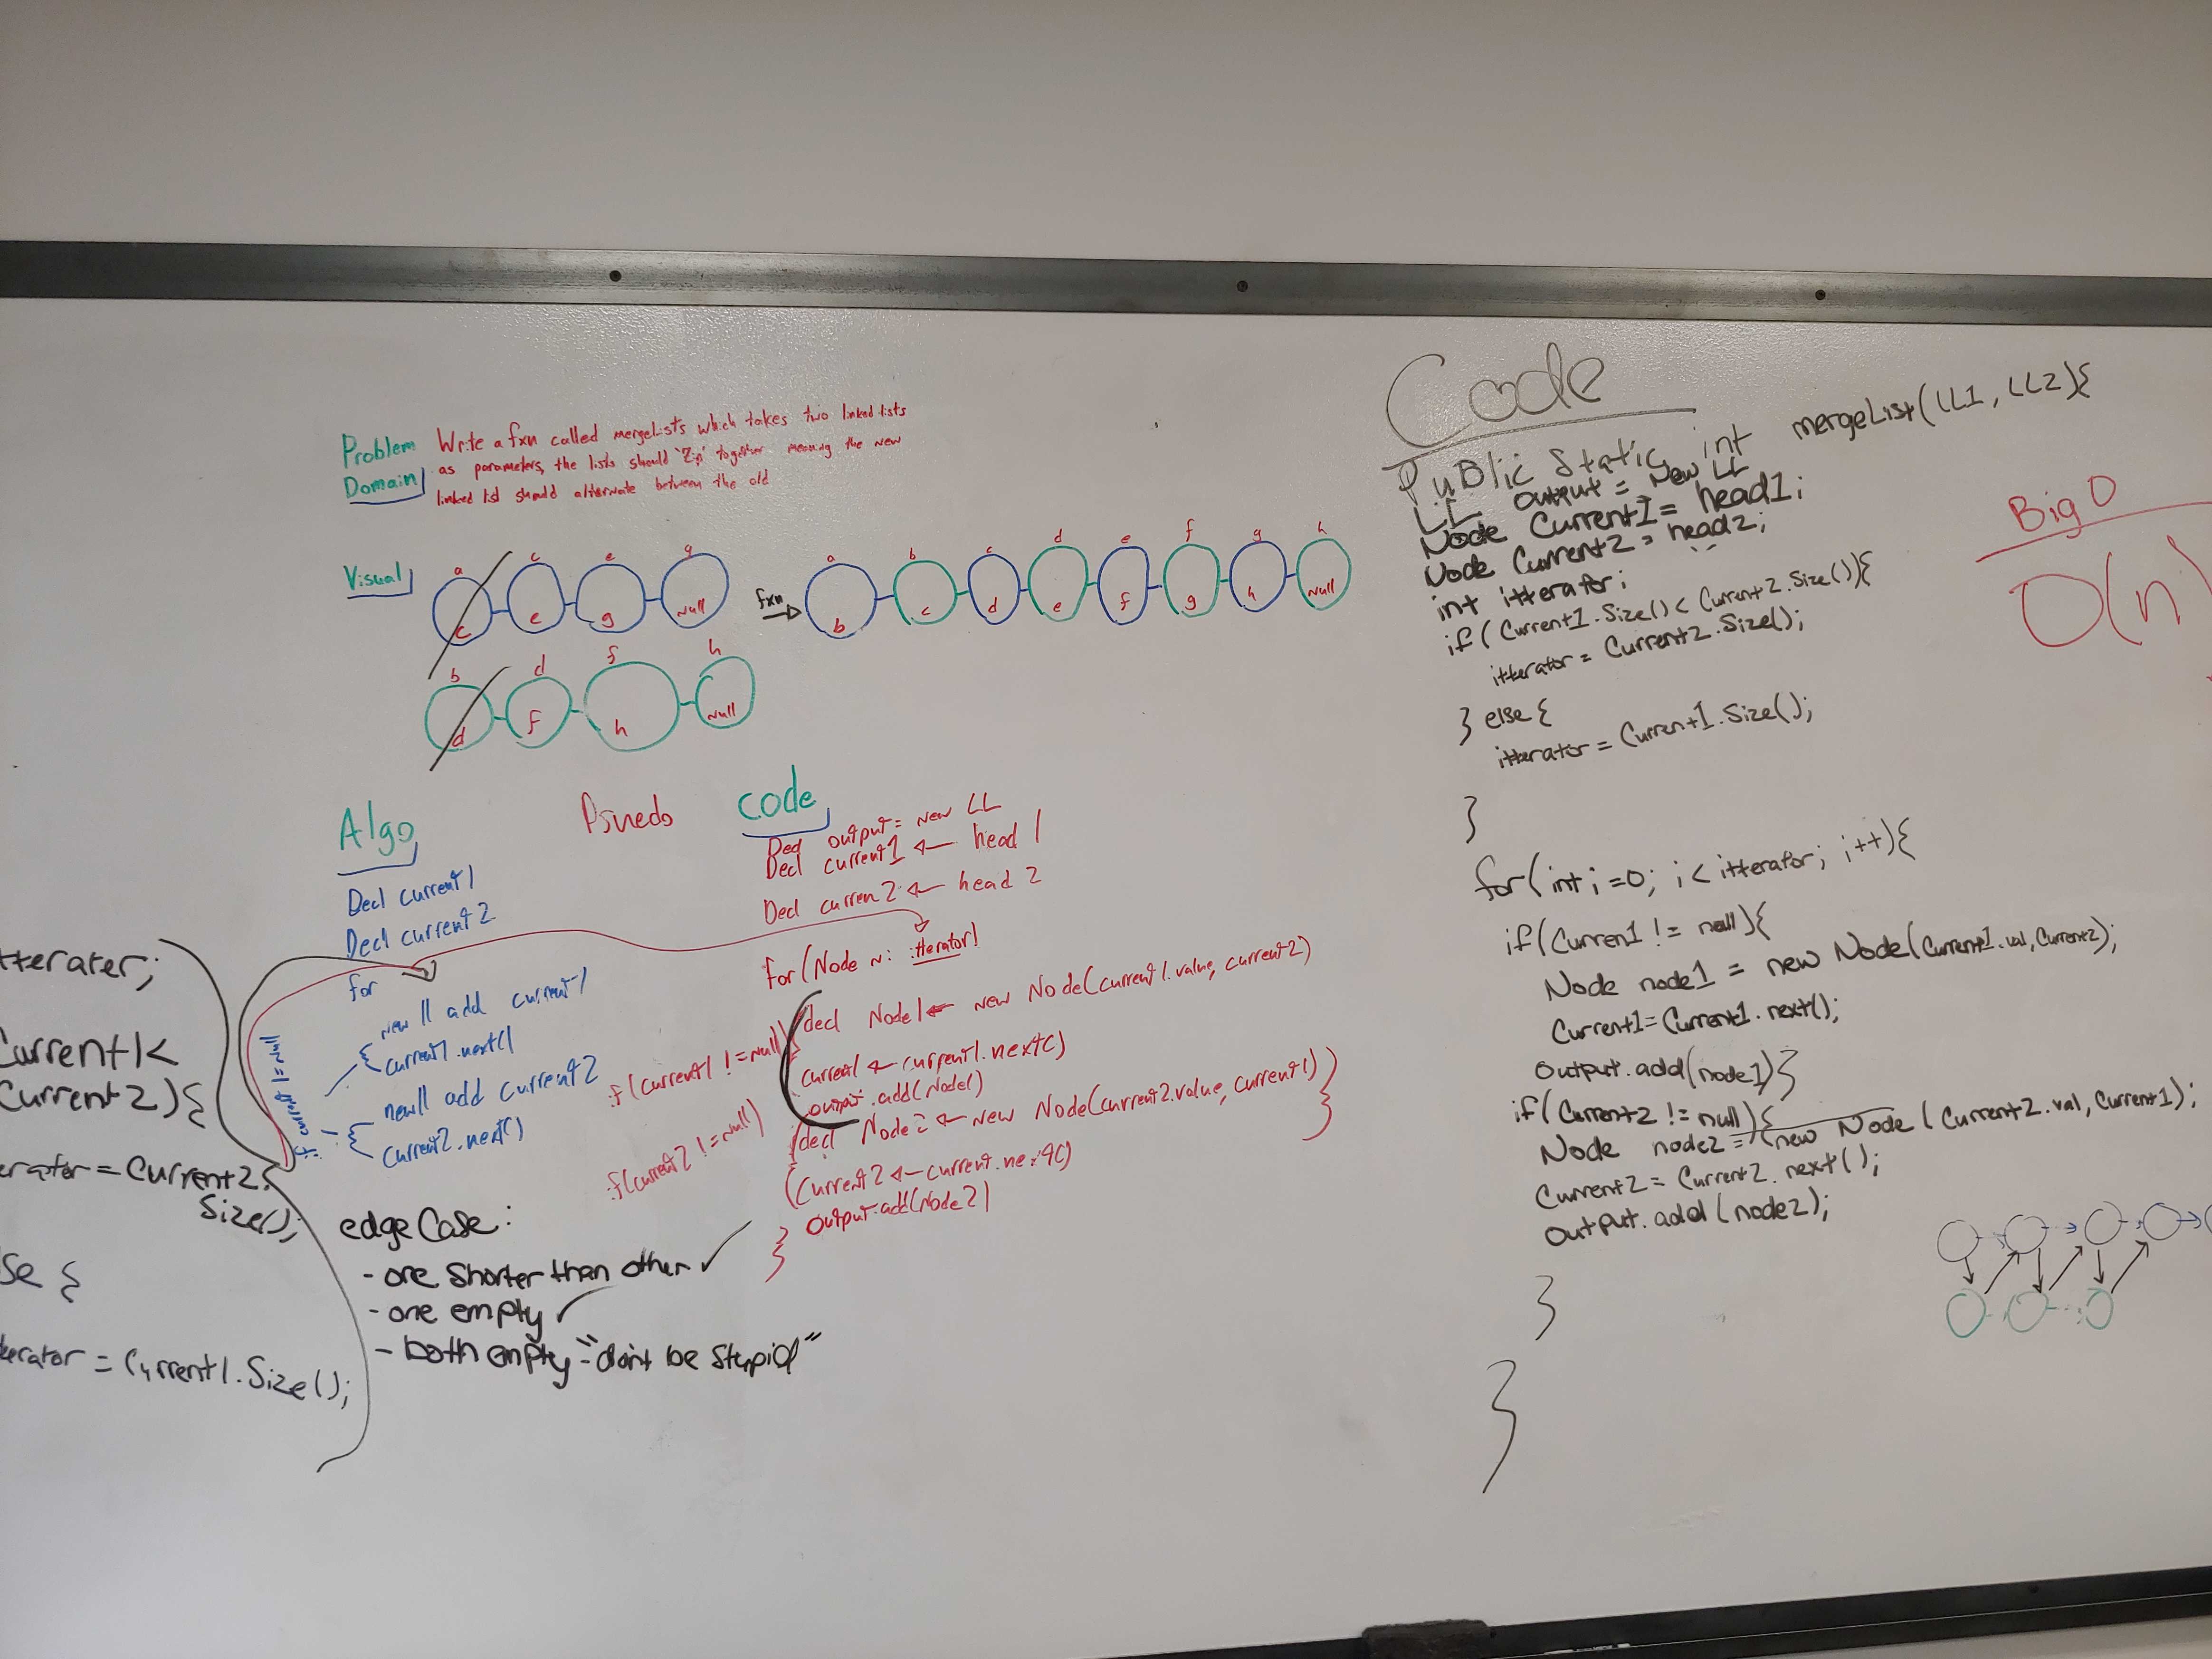 Problem Domain
Write a fxn called mergeLists which takes two linked lists
as parameters, the lists should 'Zip' together meaning the new
linked list should alternate between the old
Visual
a c e g
c e g Null
b d f h
d f h Null
fxn
a b c d e f g h
b c d e f g h Null
Algo
Decl current1
Decl current2
for
new ll add current1
current1.next()
new ll add current2
current2.next()
Psuedo code
Decl output = new LL
Decl current1 ← head 1
Decl curren2 ← head 2
for (Node n: itterator)
if (current1 != null)
decl Node1 ← new Node(current1.value, current2)
current ← current1.next()
output.add(Node1)
if (current2 != null)
decl Node2 ← new Node(current2.value, current1)}
(current2 ← current.next()
output.add(node2)
}
edgeCase:
- one Shorter than other ✓
- one empty ✓
- both empty - "dont be stupid"
tterater;
Current1<
Current2){
erator = Current2.
Size();
se {
terator = Current1.Size();
Code
PuBlic Static int mergeList(LL1, LL2){
LL output = New LL
Node Current1 = head1;
Node Current2 = head2;
int itterator;
if (Current1.Size() < Current2.Size()){
itterator = Current2.Size();
} else {
itterator = Current1.Size();
}
for (int i=0; i < itterator; i++){
if (Curren1 != null){
Node node1 = new Node(Current1.val, Current2);
Current1 = Current1.next();
output.add(node1)}
if (Current2 != null){
Node node2 = (new Node (Current2.val, Current1);
Current2 = Current2.next();
output.add(node2);
}
}
Big O
O(n)